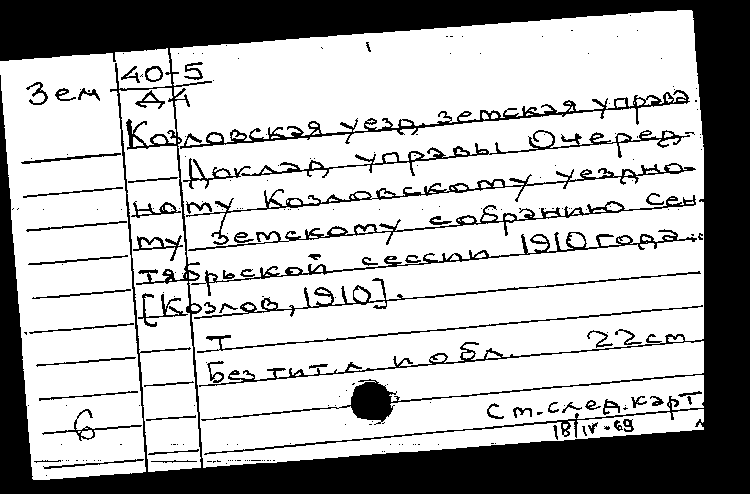 40-5
Зем Д4
Козловская уезд. земская управа
Доклад управы Очеред-
ному Козловскому уездно-
му земскому собранию сен-
тябрьской сессии 1910 года.
[Козлов, 1910].
т
Без тит. л. и обл. 22 cm
6
См. след. карт.
18/IV-69